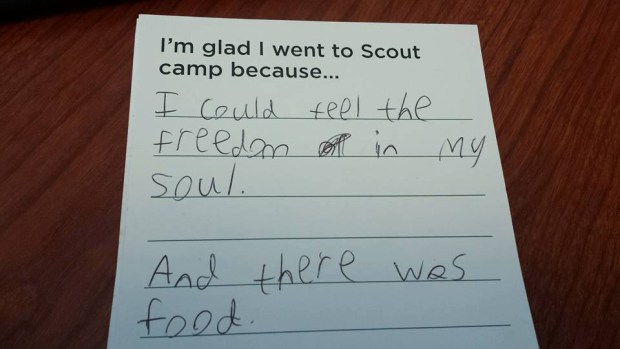 I'm glad I went to Scout
camp because...
I could feel the
freedom in my
soul.
And there was
food.